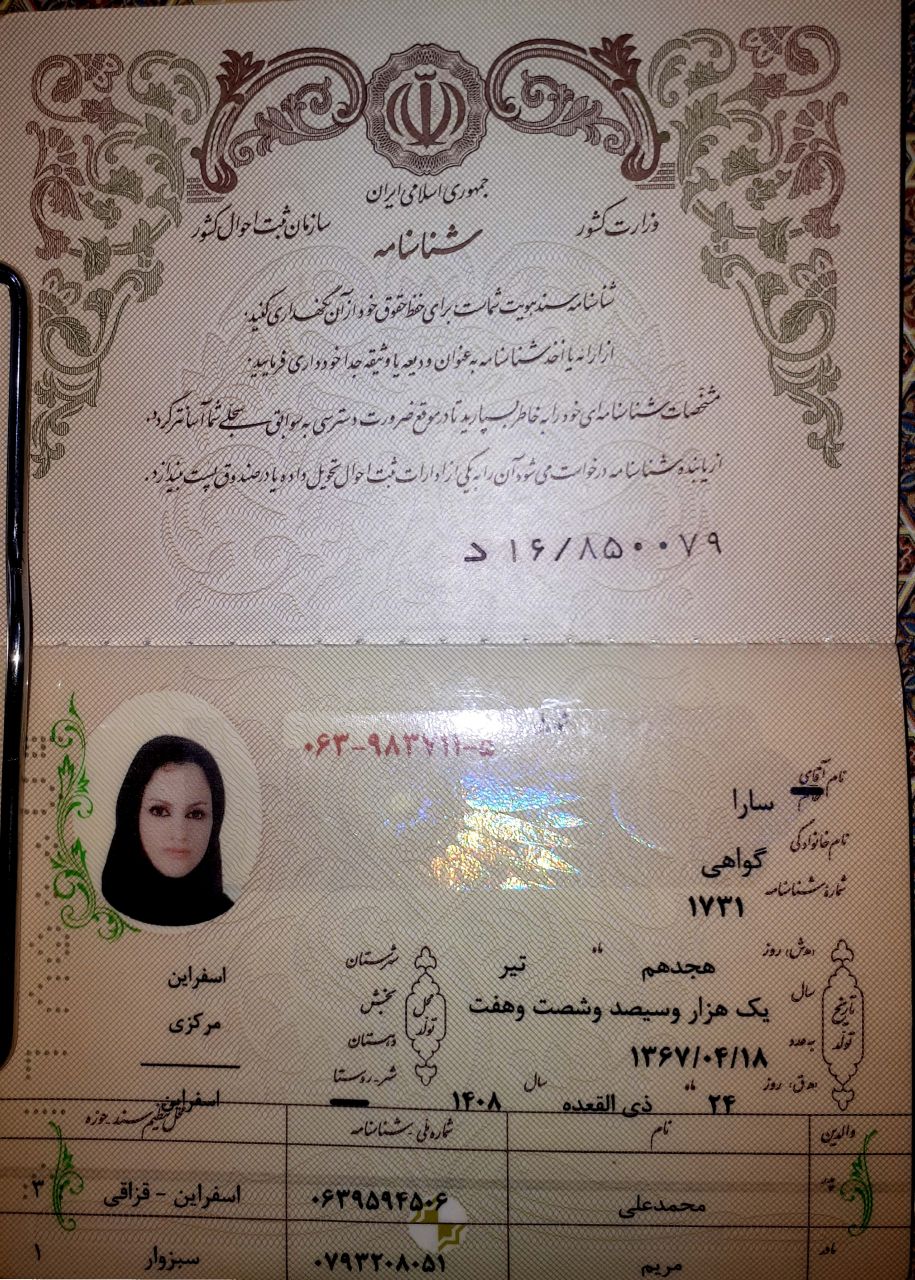 جمهوری اسلامی ایران
وزارت کشور
سازمان ثبت احوال کشور
شناسنامه
شناسنامه سند هویت شماست، برای حفظ حقوق خود از آن نگهداری کنید.
از ارائه یا اخذ شناسنامه به عنوان ودیعه یا وثیقه جدا خودداری فرمایید.
مشخصات شناسنامه‌ای خود را به خاطر بسپارید تا در موقع ضرورت دسترسی به سوابق سجلی شما آسانتر گردد.
از یابنده شناسنامه درخواست می‌شود آن را به یکی از ادارات ثبت احوال تحویل داده یا در صندوق پست بیندازد.
د ۱۶/۸۵۰۰۷۹
۰۶۳-۹۸۳۷۱۱-۵
نام آقای
خانم
سارا
نام خانوادگی
گواهی
شماره شناسنامه
۱۷۳۱
تاریخ تولد
(ه.ش) روز هجدهم ماه تیر
سال یک هزار وسیصد وشصت وهفت
به عدد ۱۳۶۷/۰۴/۱۸
(ه.ق) روز ۲۴ ماه ذی القعده سال ۱۴۰۸
محل تولد
شهرستان اسفراین
بخش مرکزی
دهستان
شهر-روستا اسفراین
والدین نام شماره ملی-شناسنامه محل تنظیم سند-حوزه
پدر محمدعلی ۰۶۳۹۵۹۴۵۰۶ اسفراین - قزاقی ۳
مادر مریم ۰۷۹۳۲۰۸۰۵۱ سبزوار ۱